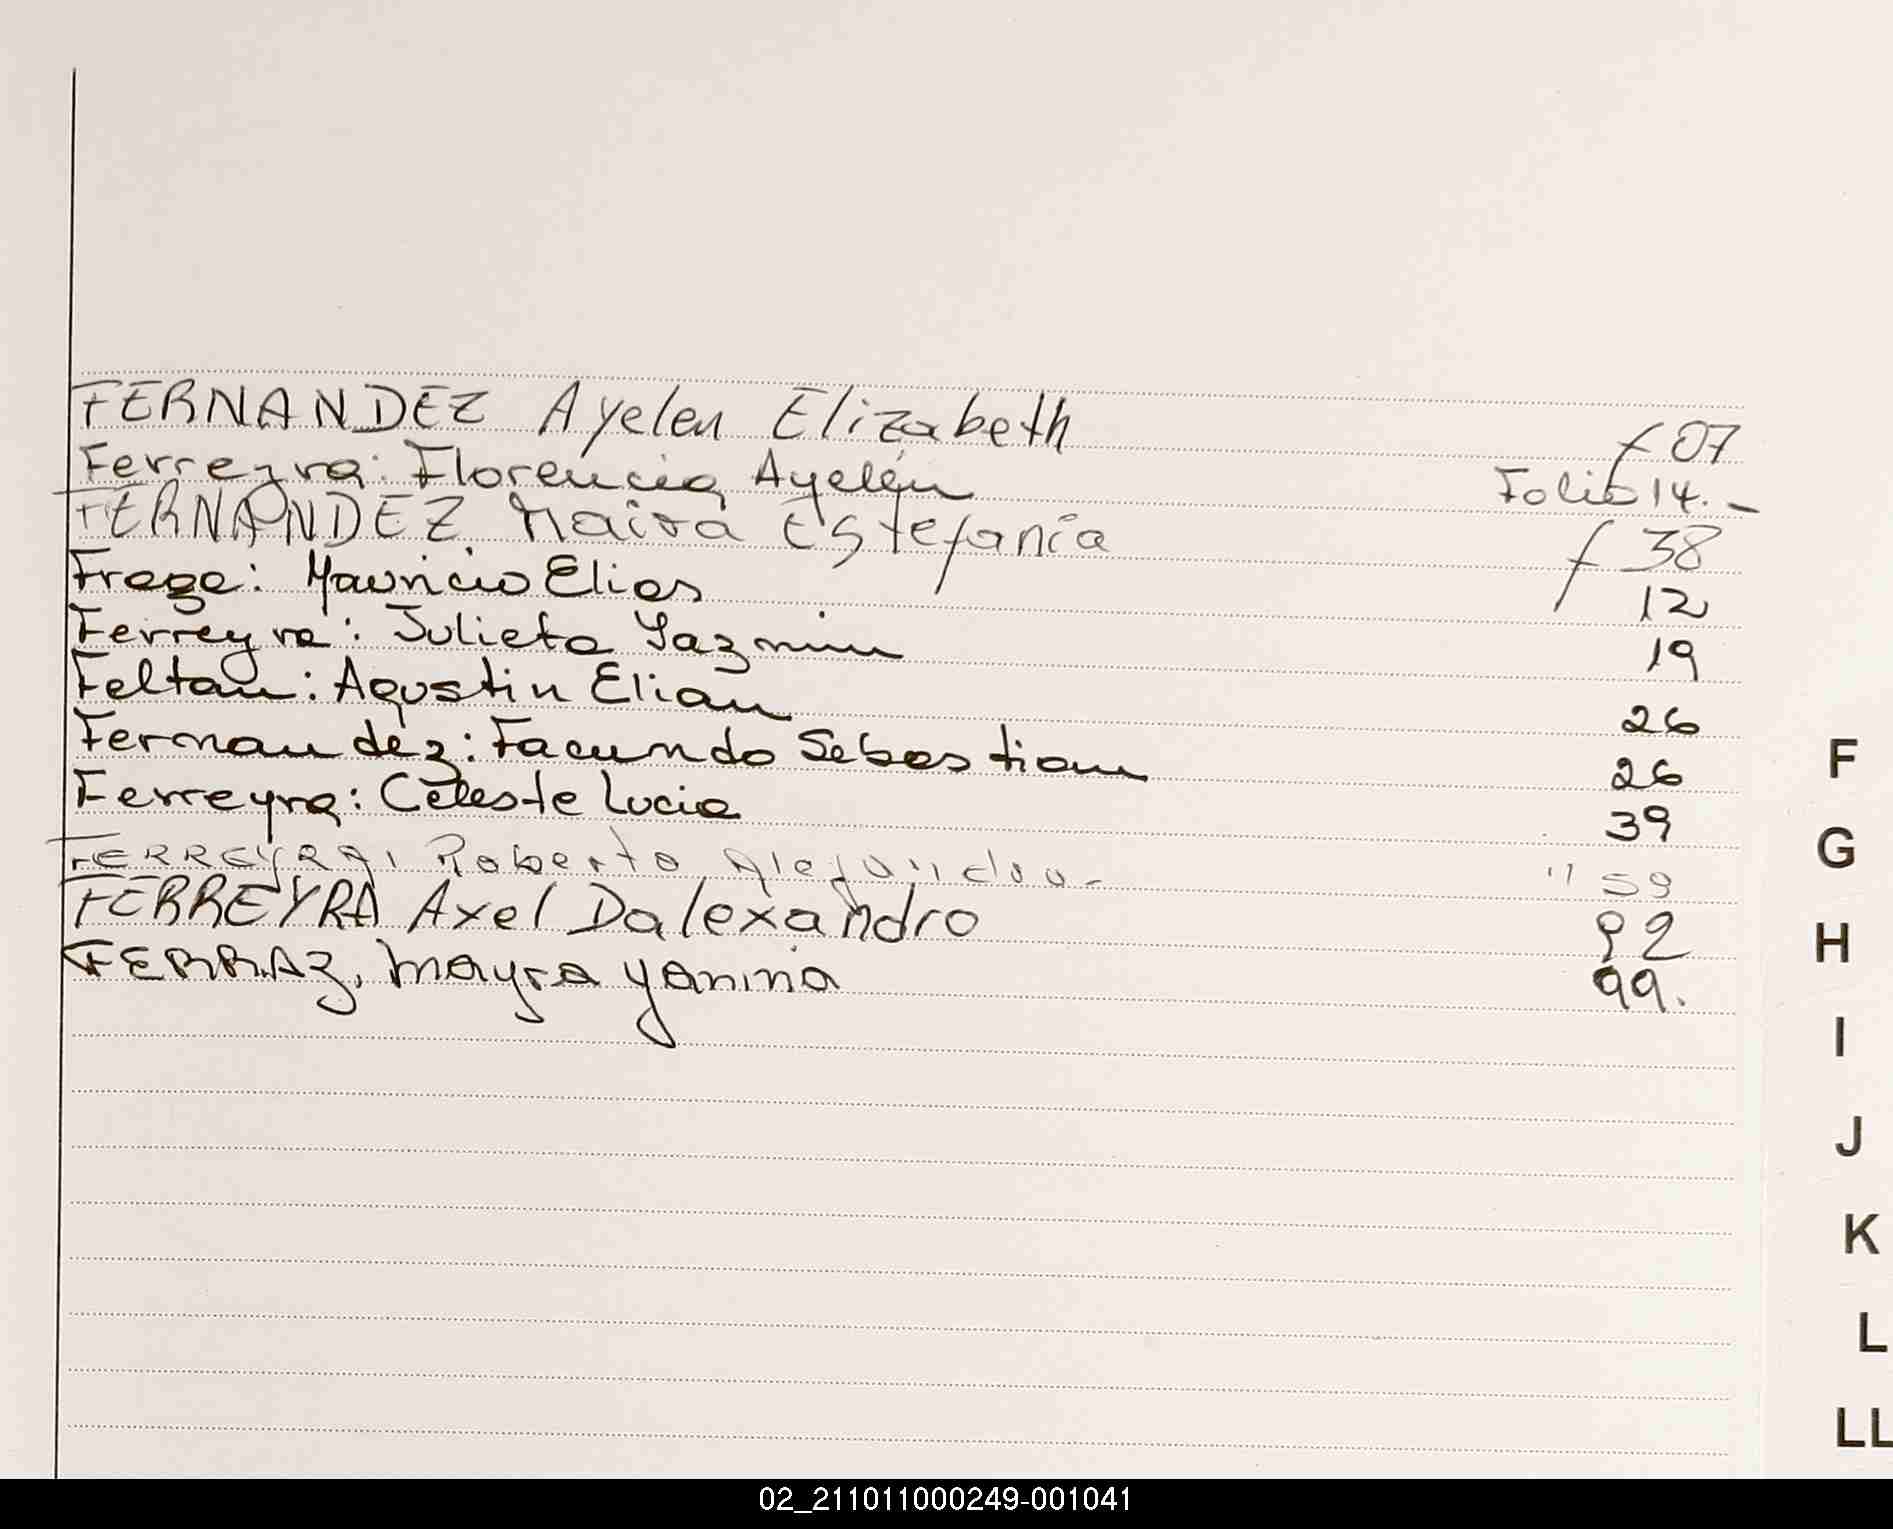 FERNANDEZ Ayelen Elizabeth f 07
Ferreyra: Florencia Ayelén Folio 14.-
FERNANDEZ, Maira Estefanía f 38
Fraga: Mauricio Elias 12
Ferreyra: Julieta Yazmin 19
Feltan: Agustin Elian 26
Fernandez: Facundo Sebastian 26
Ferreyra: Celeste Lucia 39
FERREYRA, Roberto Alejandro.- " 59
FERREYRA Axel Dalexandro 92
FERRAZ, Mayra Yanina 99.
F
G
H
I
J
K
L
LL
02_211011000249-001041